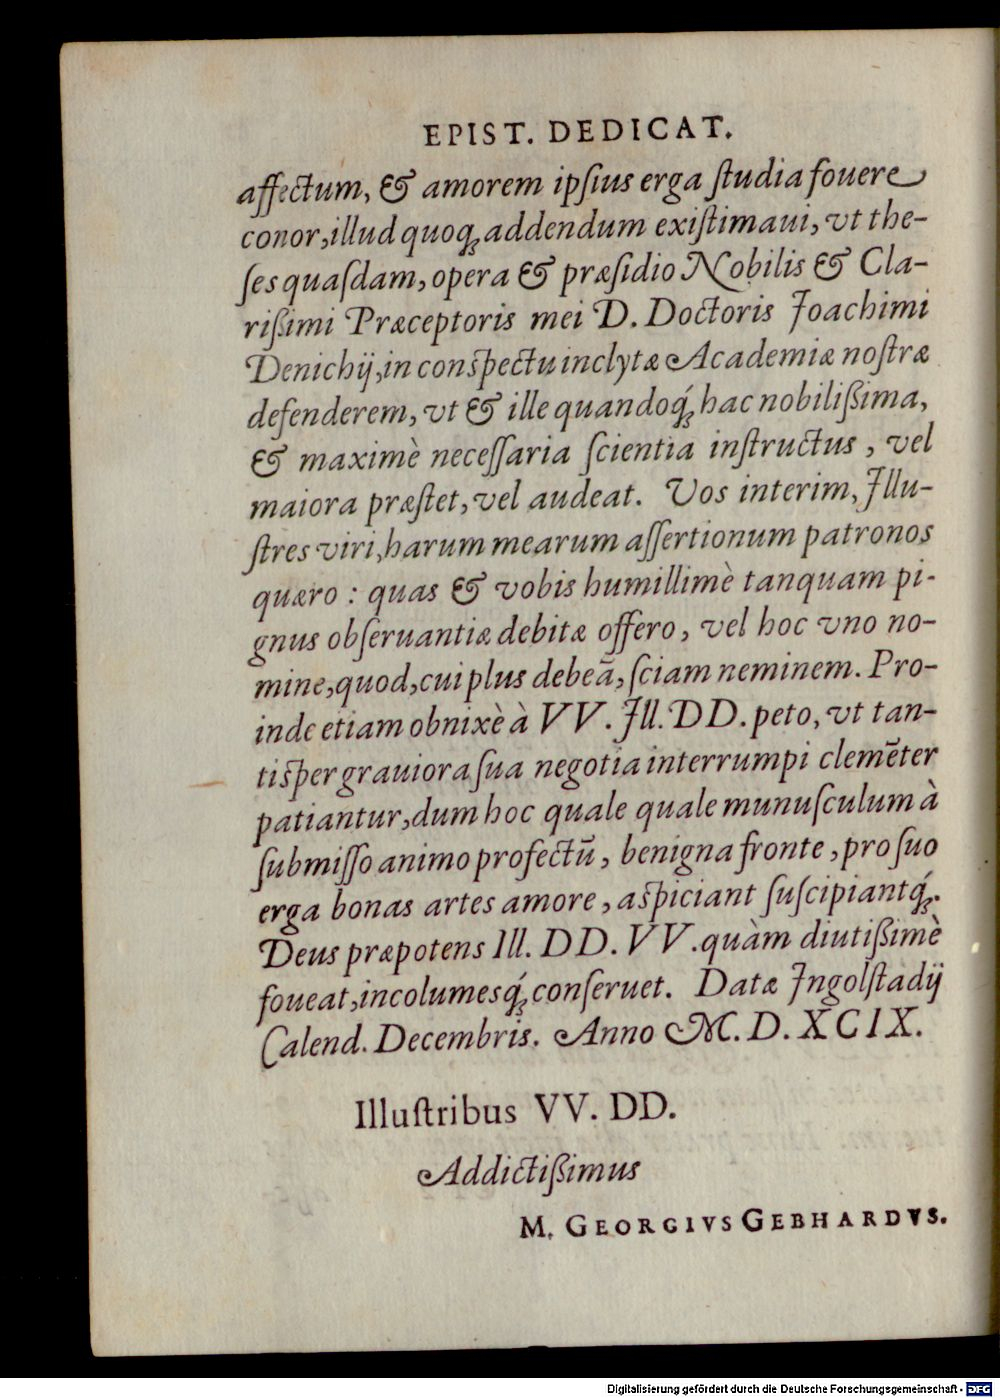 EPIST. DEDICAT.
affectum, & amorem ipſius erga ſtudia fouere
conor, illud quoq́ꝫ addendum exiſtimaui, vt the-
ſes quaſdam, opera & præſidio Nobilis & Cla-
rißimi Præceptoris mei D. Doctoris Joachimi
Denichij, in conſpectu inclytæ Academiæ noſtræ
defenderem, vt & ille quandoq́ꝫ hac nobilißima,
& maximè neceſſaria ſcientia inſtructus, vel
maiora præſtet, vel audeat. Vos interim, Jllu-
ſtres viri, harum mearum aſſertionum patronos
quæro: quas & vobis humillimè tanquam pi-
gnus obſeruantiæ debitæ offero, vel hoc vno no-
mine, quod, cui plus debeā, ſciam neminem. Pro-
inde etiam obnixè à VV. Jll. DD. peto, vt tan-
tiſper grauiora ſua negotia interrumpi clemēter
patiantur, dum hoc quale quale munuſculum à
ſubmiſſo animo profectū, benigna fronte, pro ſuo
erga bonas artes amore, aſpiciant ſuſcipiantq́ꝫ.
Deus præpotens Ill. DD. VV. quàm diutißimè
foueat, incolumesq́ꝫ conſeruet. Datæ Jngolſtadij
Calend. Decembris. Anno M. D. XCIX.
Illuſtribus VV. DD.
Addictißimus
M. GEORGIVS GEBHARDVS.
Digitalisierung gefördert durch die Deutsche Forschungsgemeinschaft - DFG